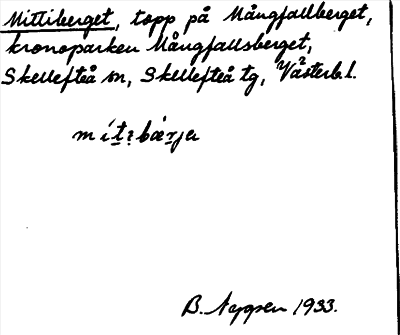 Mittiberget, topp på Mångfallberget,
kronoparken Mångfallsberget,
Skellefteå sn, Skellefteå tg, Västerb. l.
mítı bǽrjer
B. 1933.